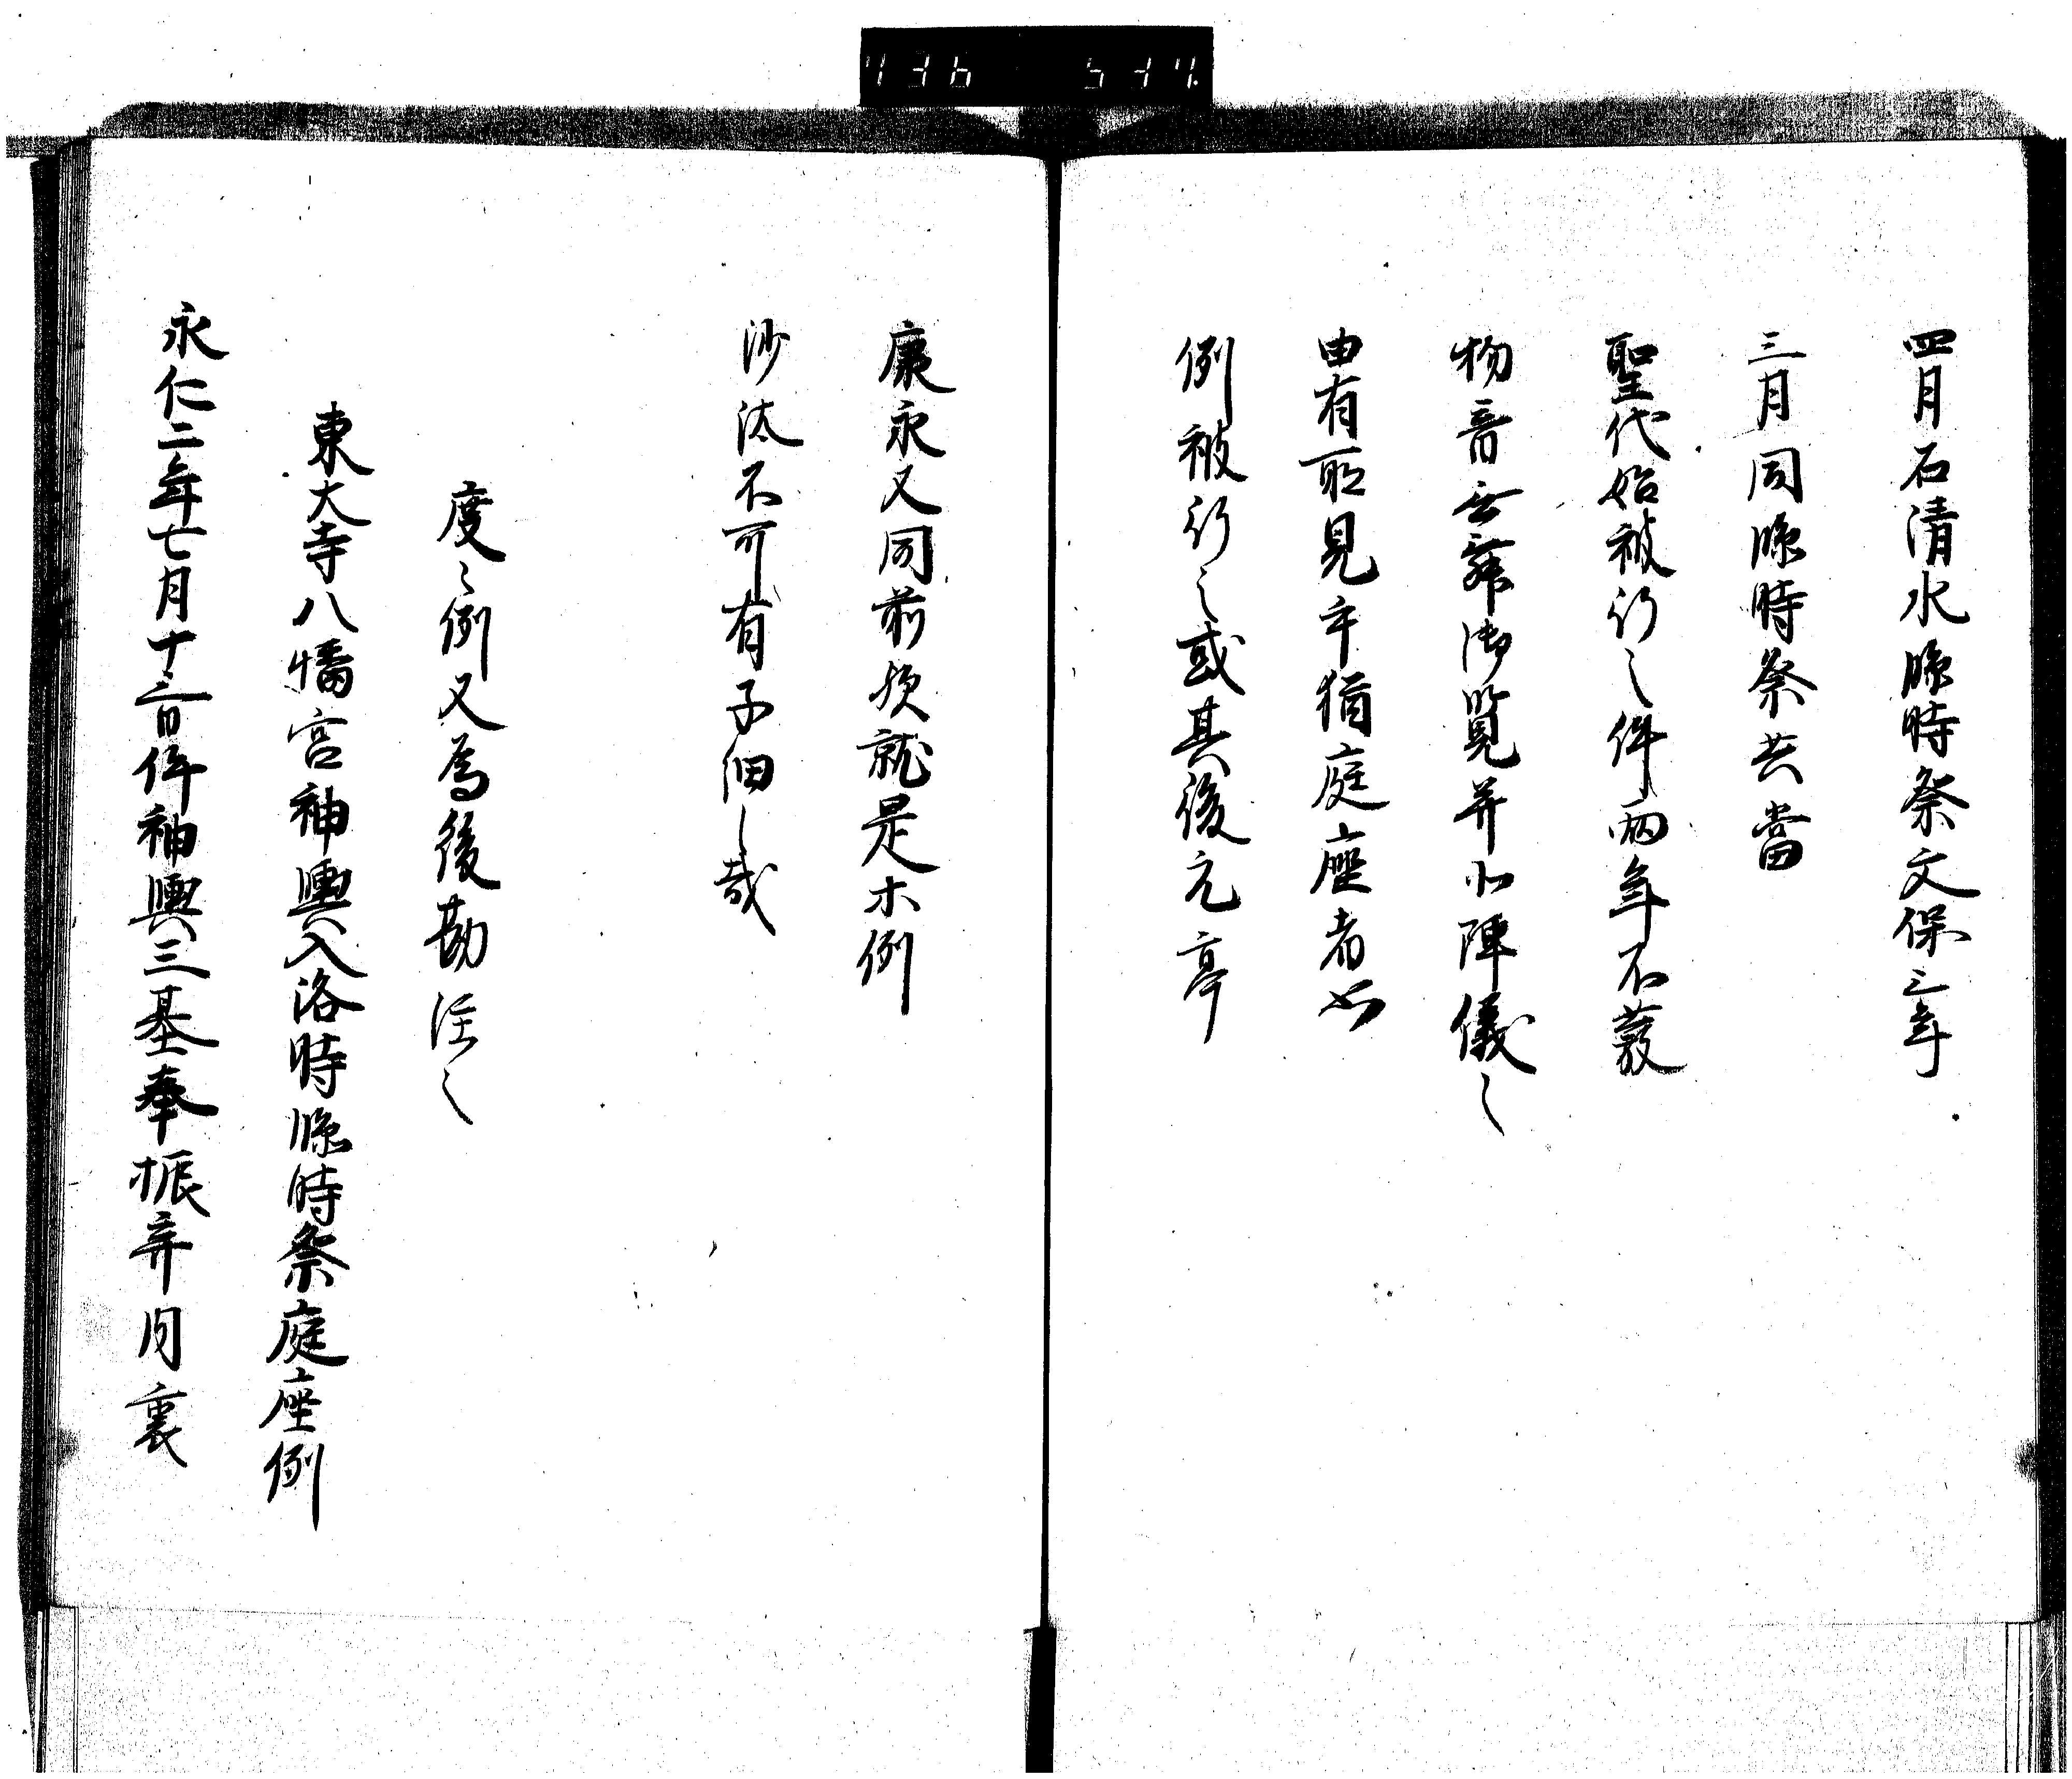 四月石清水臨時祭文保三年
三月同臨時祭共當
聖代始被行之件兩年不發
物音無舞御覽并北陣儀之
由有所見乎猶庭座者如
例被行之或其後元亨
康永又同前然就是等例
沙汰不可有子細之哉
度々例又爲後勘注之
東大寺八幡宮神輿入洛時臨時祭庭座例
永仁二年七月十三日件神輿三基奉振弃内裏